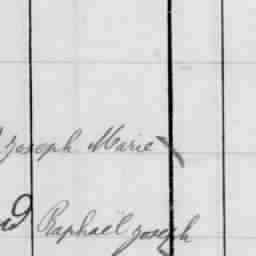 Joseph Marie
Raphaël Joseph